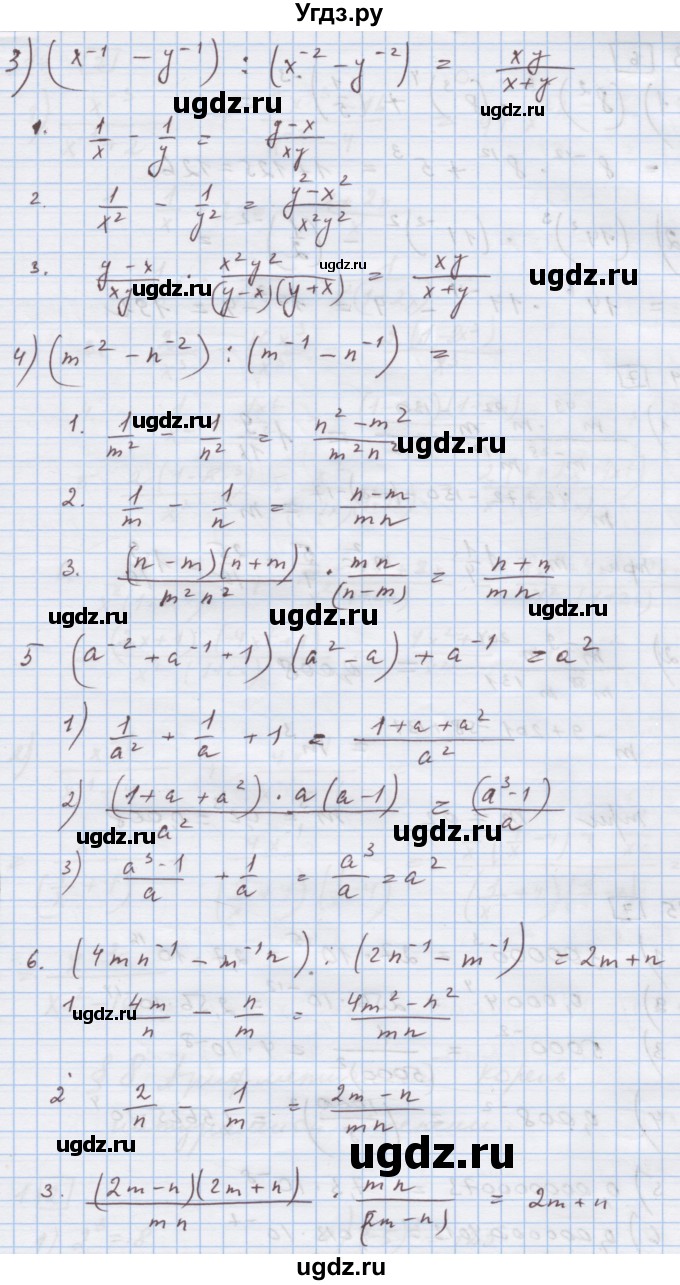 Угдз.ру
3) (x⁻¹ − y⁻¹) : (x⁻² − y⁻²) = xy/(x+y)
ugdz.ru ugdz.ru
1. 1/x − 1/y = (y−x)/xy
ugdz.ru
2. 1/x² − 1/y² = (y²−x²)/x²y²
3. (y−x)/xy · x²y²/((y−x)(y+x)) = xy/(x+y)
ugdz.ru ugdz.ru ugdz.ru
4) (m⁻² − n⁻²) : (m⁻¹ − n⁻¹) =
1. 1/m² − 1/n² = (n²−m²)/m²n²
ugdz.ru ugdz.ru
2. 1/m − 1/n = (n−m)/mn
3. (n−m)(n+m)/m²n² · mn/(n−m) = (n+m)/mn
ugdz.ru ugdz.ru ugdz.ru
5 (a⁻² + a⁻¹ + 1) (a² − a) + a⁻¹ = a²
1) 1/a² + 1/a + 1 = (1+a+a²)/a²
2) (1+a+a²)·a(a−1)/a² = (a³−1)/a
ugdz.ru ugdz.ru
3) (a³−1)/a + 1/a = a³/a = a²
6. (4mn⁻¹ − m⁻¹n) : (2n⁻¹ − m⁻¹) = 2m+n
1 4m/n − n/m = (4m²−n²)/mn
ugdz.ru
2 2/n − 1/m = (2m−n)/mn
ugdz.ru ugdz.ru
3. (2m−n)(2m+n)/mn · mn/(2m−n) = 2m+n
ugdz.ru